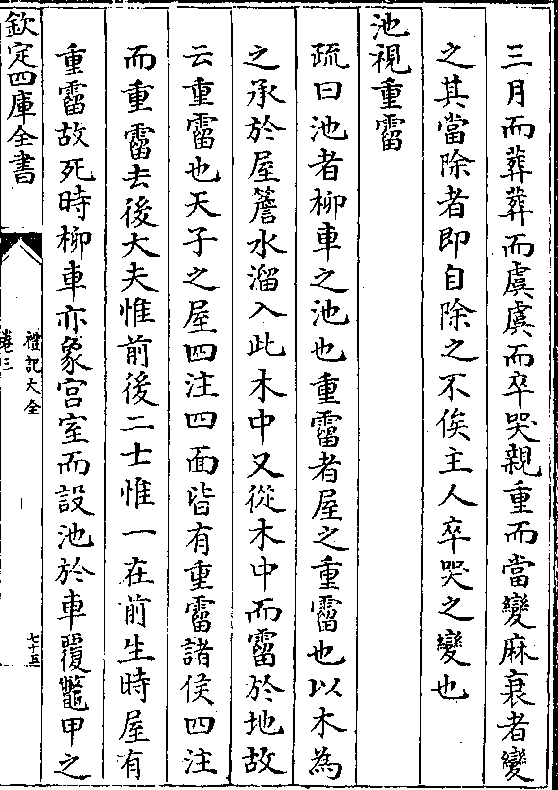 三月而葬葬而虞虞而卒哭親重而當變麻衰者變
之其當除者即自除之不俟主人卒哭之變也
池視重霤
疏曰池者柳車之池也重霤者屋之重霤也以木為
之承於屋簷水溜入此木中又從木中而霤於地故
云重霤也天子之屋四注四面皆有重霤諸侯四注
而重霤去後大夫惟前後二士惟一在前生時屋有
重霤故死時柳車亦象宫室而設池於車覆鼈甲之
欽定四庫全書
禮記大全
卷三
七十五